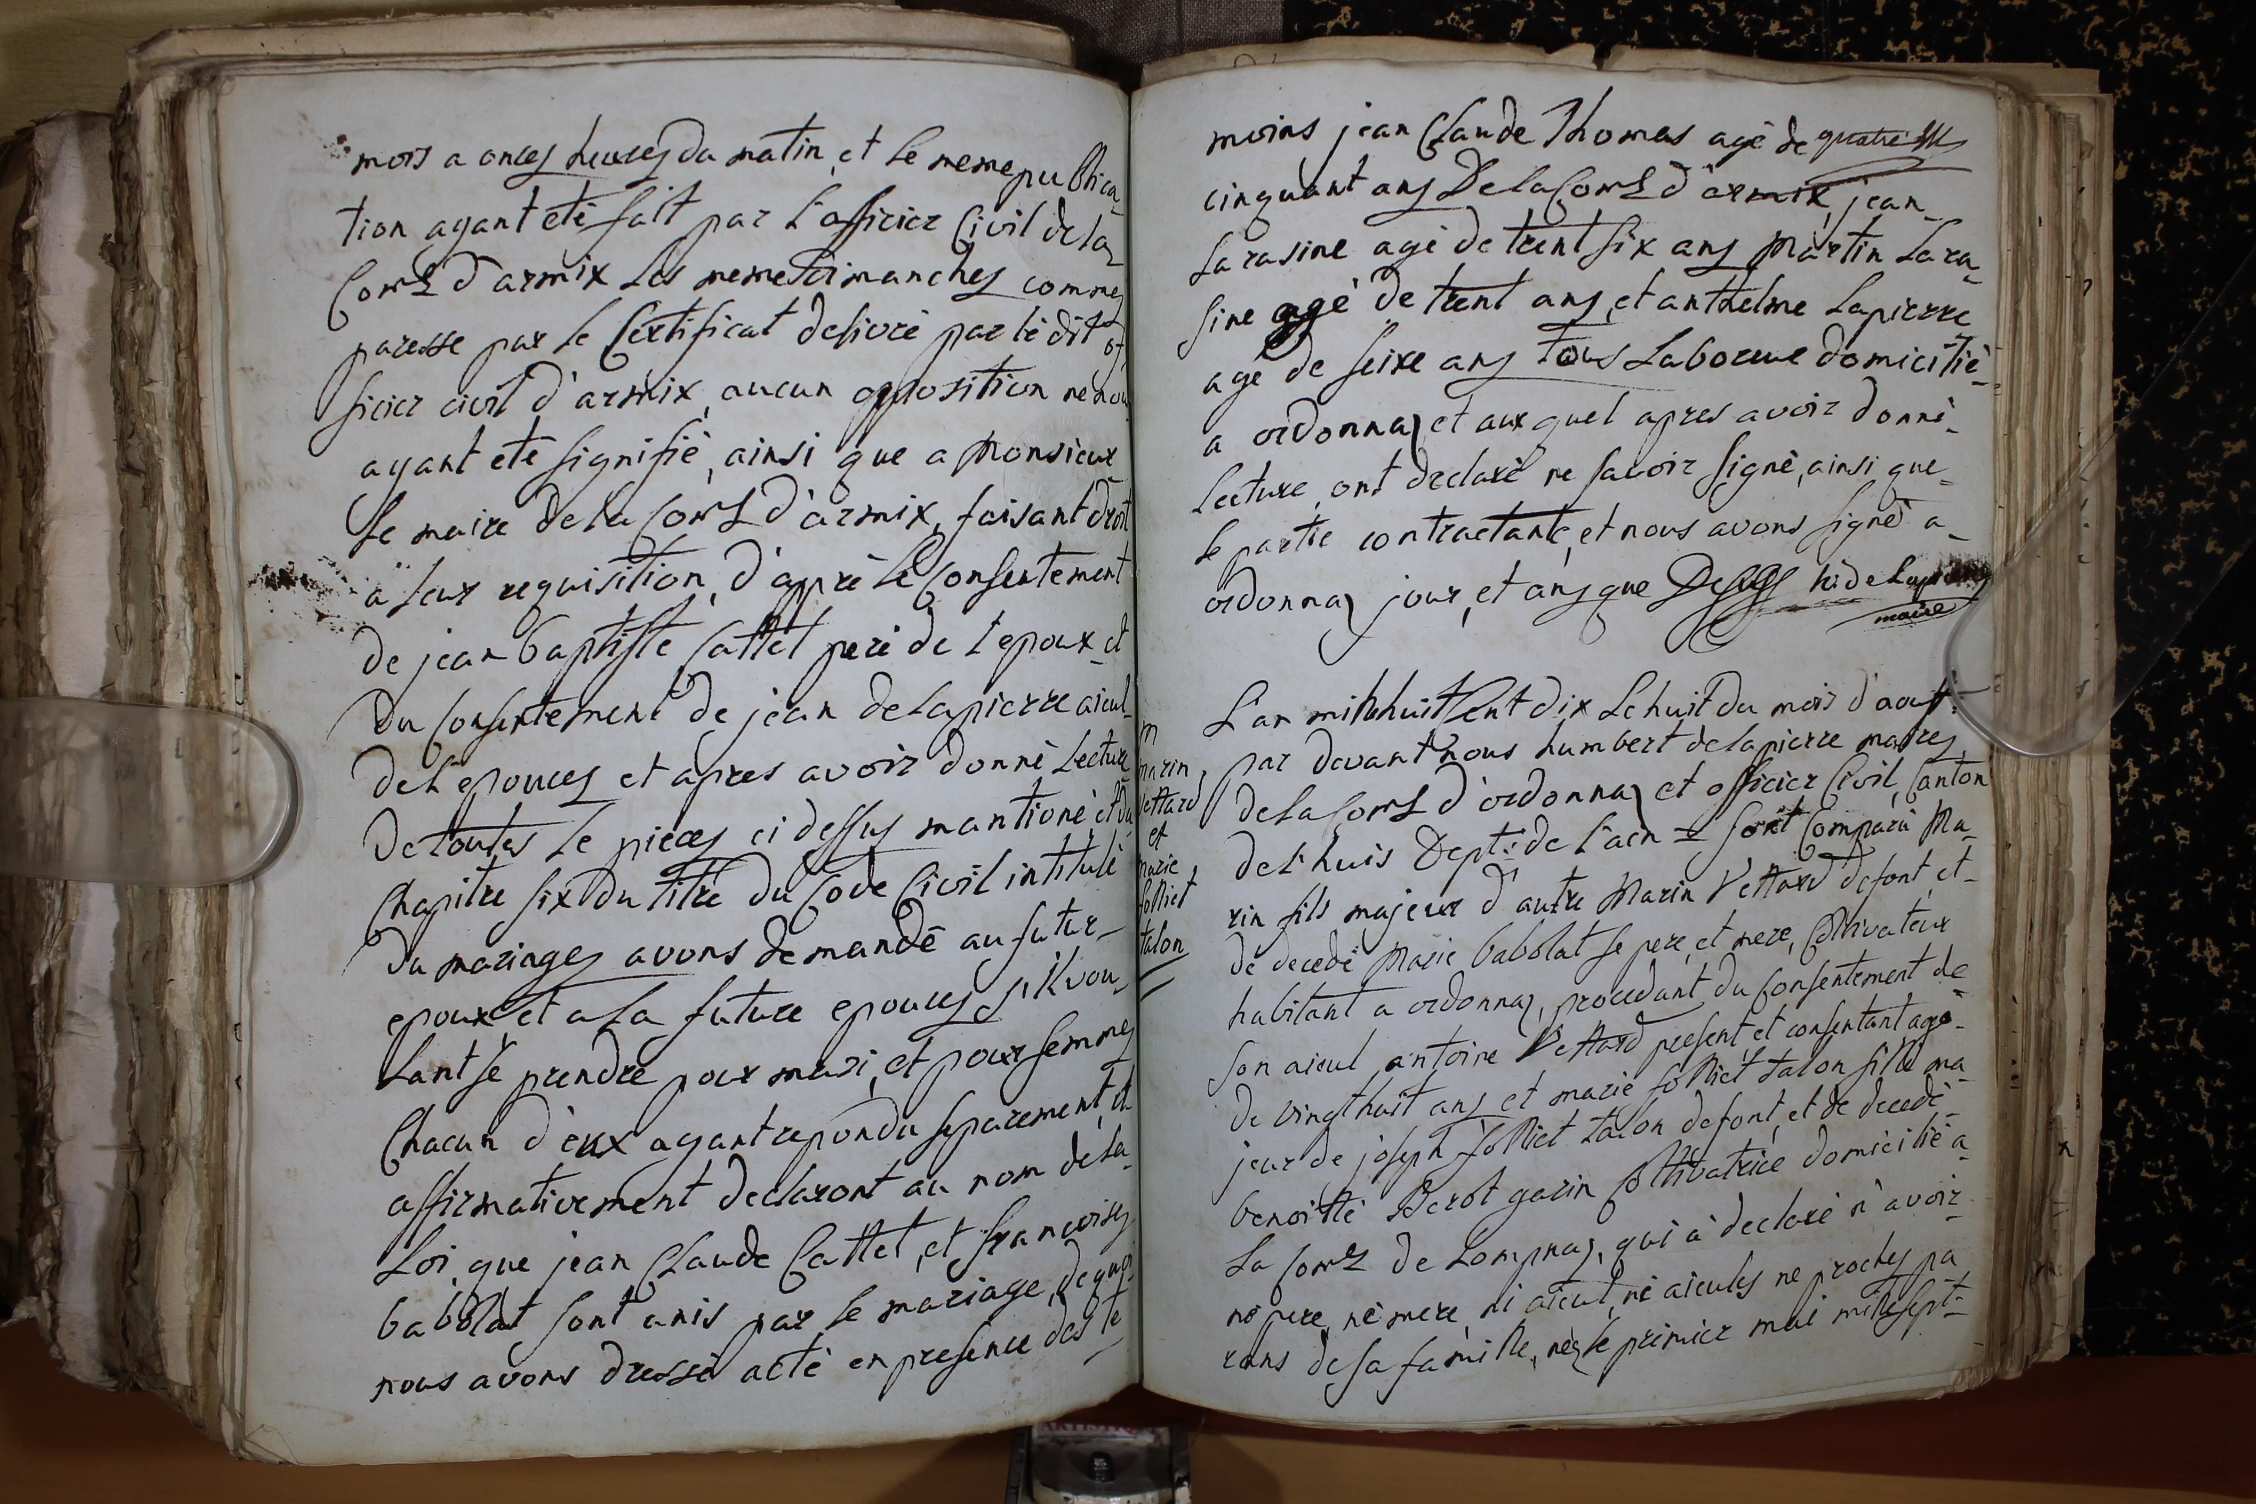 mois a onces heures du matin, et le meme publica-
tion ayant eté fait par l'officier Civil de la
Com.e d'armix les meme dimanches comme
paresse par le Certificat delivré par lé dit of
ficier civil d'armix, aucun opposition ne nou
ayant eté signifié, ainsi que a Monsieur
le maire de la Com.e d'armix, faisant droit
a leur requisition, d'apprè le Consentement
de jean baptiste Cattet peré de l'epoux et
du Consentement de jean delapierre aieul
de l'epouces et apres avoir donné lecture
de toutes le pieces ci dessus mantioné et du
Chapitre six du titre du Code Civil intitulé
du mariages avons demandé au futur
epoux et a la future epouces s'il vou-
lant se prendre pour mari, et pour femmes
Chacun d'eux ayant repondu separement et
affirmativement declaront au nom de la
Loi, que jean Claude Cattet, et francoises
babolat sont unis par le mariage, de quoi
nous avons dressé acté en presence des té
moins jean Claude Thomas agé de quatre
cinquant ans De la Com.e d'armix, jean
sarasine agé de trent six ans Martin Sara
sine agé de trent ans, et anthelme Lapierre
agé de seixe ans tous Laboreur domicilié
a ordonnaz et aux quel apres avoir donné
lecture, ont declaré ne savoir signé, ainsi que
le partie contractante, et nous avons signéd a
ordonnaz jour, et ans que Dessus h. delapierre
maire
m
marin
Vettard
et
marie
folliet
talon
L'an mil huit Cent dix Le huit du mois d'aout
par devant nous humbert delapierre maires
de la Com.e d'ordonnaz et officier Civil, Canton
de l'huis Dept. de l'ain = sont Comparu Ma-
rin fils majeur d'autre Marin Vettard defont, et
de decedé Marie babolat se pere, et mere, Coltivateur
habitant a ordonnaz, procedant du Consentement de
son aieul antoine Vettard present et consentant age
de vingt huit ans et marie folliet talon fille ma
jeur de joseph folliet talon defont, et de decedé
benoitté Berot garin Coltivatrice domicilié a
la Com.e de Lompnaz, qui à declaré n'avoir
né pere, né mere, ni aieul, né aieules ne proches pa
rans de sa famille, néz le primier mai mille sept